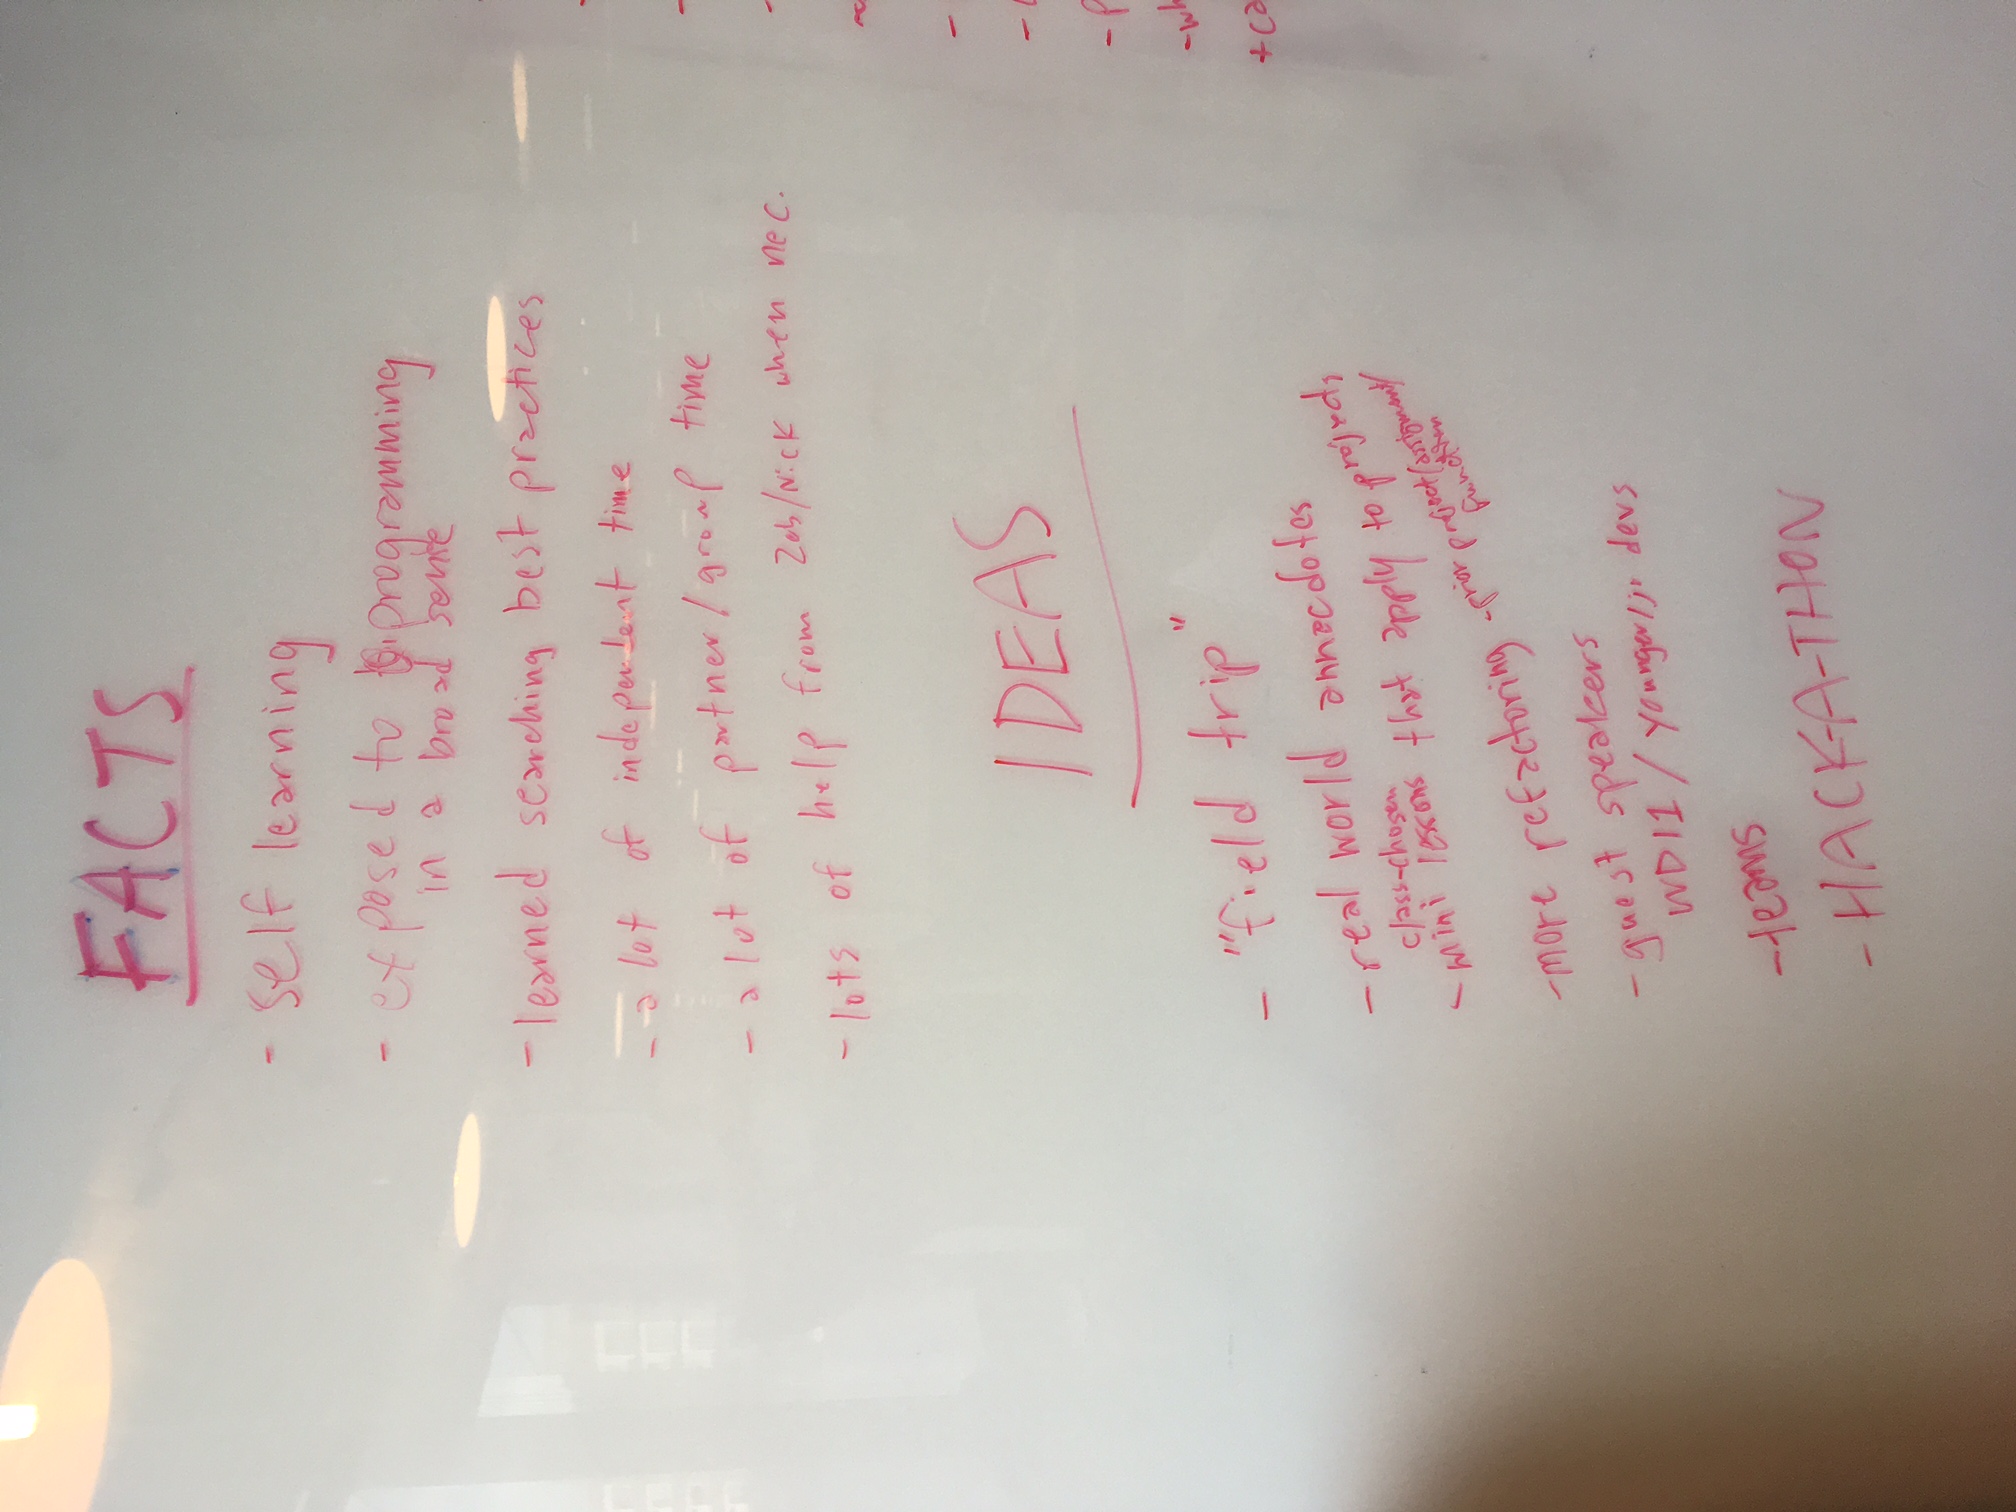 FACTS
- self learning
- exposed to programming
in a broad sense
- learned searching best practices
- a lot of independent time
- a lot of partner/group time
- lots of help from Zeb/Nick when nec.
IDEAS
- "field trip"
- real world annecdotes
class-chosen
- mini lessons that apply to projects
- more refactoring - prior project/assignment/
function
- guest speakers
WDI1 / younger/jr devs
- teams
- HACK-A-THON
-
-
-
-
- P
- wh
+ ca